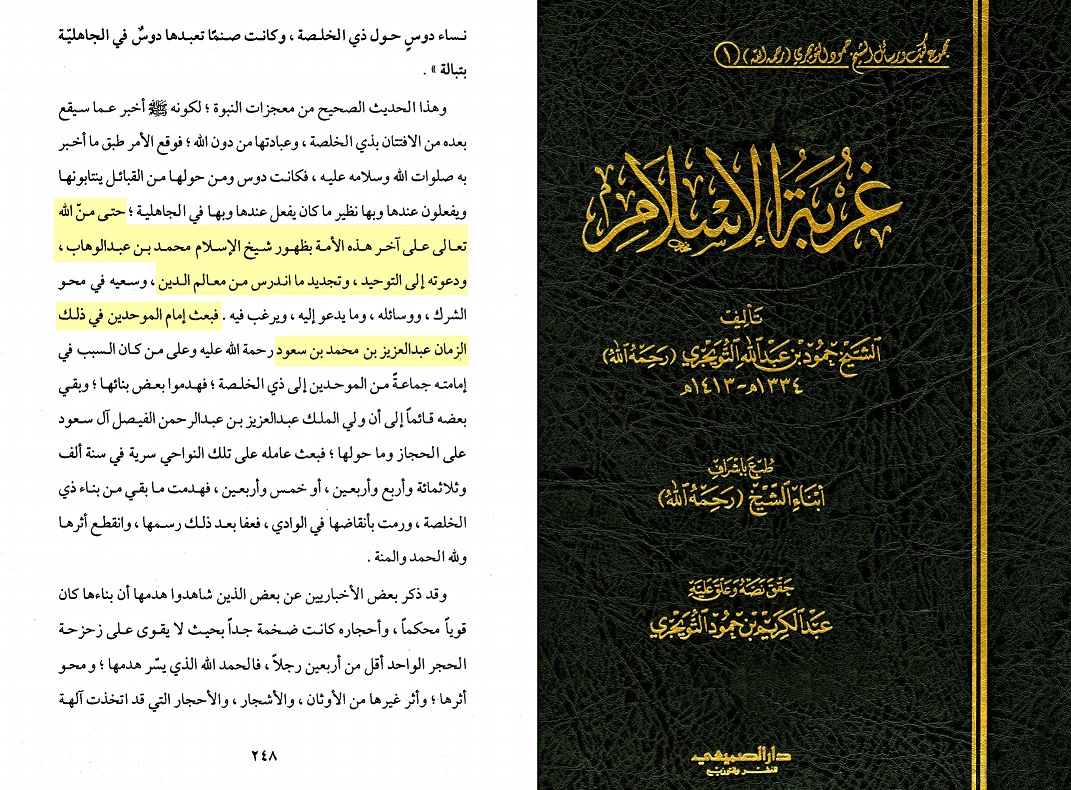 مجموع كتب ورسائل الشيخ حمود التويجري (رحمه الله) ١
غُرْبَةُ الإِسْلَامِ
تَأْلِيفُ
الشَّيْخِ حَمُودِ بْنِ عَبْدِ اللهِ التُّوَيْجِرِي (رَحِمَهُ اللهُ)
١٣٣٤هـ-١٤١٣هـ
طُبِعَ بِإِشْرَافِ
أَبْنَاءِ الشَّيْخِ (رَحِمَهُ اللهُ)
حَقَّقَ نَصَّهُ وَعَلَّقَ عَلَيْهِ
عَبْدُ الْكَرِيمِ بْنُ حَمُودِ التُّوَيْجِرِي
دار الصميعي
للنشر والتوزيع
نساء دوسٍ حول ذي الخلصة ، وكانت صنمًا تعبدها دوسٌ في الجاهليّة
بتبالة » .
وهذا الحديث الصحيح من معجزات النبوة ؛ لكونه ﷺ أخبر عما سيقع
بعده من الافتتان بذي الخلصة ، وعبادتها من دون الله ؛ فوقع الأمر طبق ما أخبر
به صلوات الله وسلامه عليه ، فكانت دوس ومن حولها من القبائل ينتابونها
ويفعلون عندها وبها نظير ما كان يفعل عندها وبها في الجاهلية ؛ حتى منّ الله
تعالى على آخر هذه الأمة بظهور شيخ الإسلام محمد بن عبدالوهاب ،
ودعوته إلى التوحيد ، وتجديد ما اندرس من معالم الدين ، وسعيه في محو
الشرك ، ووسائله ، وما يدعو إليه ، ويرغب فيه . فبعث إمام الموحدين في ذلك
الزمان عبدالعزيز بن محمد بن سعود رحمة الله عليه وعلى من كان السبب في
إمامته جماعةً من الموحدين إلى ذي الخلصة ؛ فهدموا بعض بنائها ؛ وبقي
بعضه قائماً إلى أن ولي الملك عبدالعزيز بن عبدالرحمن الفيصل آل سعود
على الحجاز وما حولها ؛ فبعث عامله على تلك النواحي سرية في سنة ألف
وثلاثمائة وأربع وأربعين ، أو خمس وأربعين ، فهدمت ما بقي من بناء ذي
الخلصة ، ورمت بأنقاضها في الوادي ، فعفا بعد ذلك رسمها ، وانقطع أثرها
ولله الحمد والمنة .
وقد ذكر بعض الأخباريين عن بعض الذين شاهدوا هدمها أن بناءها كان
قوياً محكماً ، وأحجاره كانت ضخمة جداً بحيث لا يقوى على زحزحة
الحجر الواحد أقل من أربعين رجلاً ، فالحمد الله الذي يسّر هدمها ؛ ومحو
أثرها ؛ وأثر غيرها من الأوثان ، والأشجار ، والأحجار التي قد اتخذت آلهة
٢٤٨